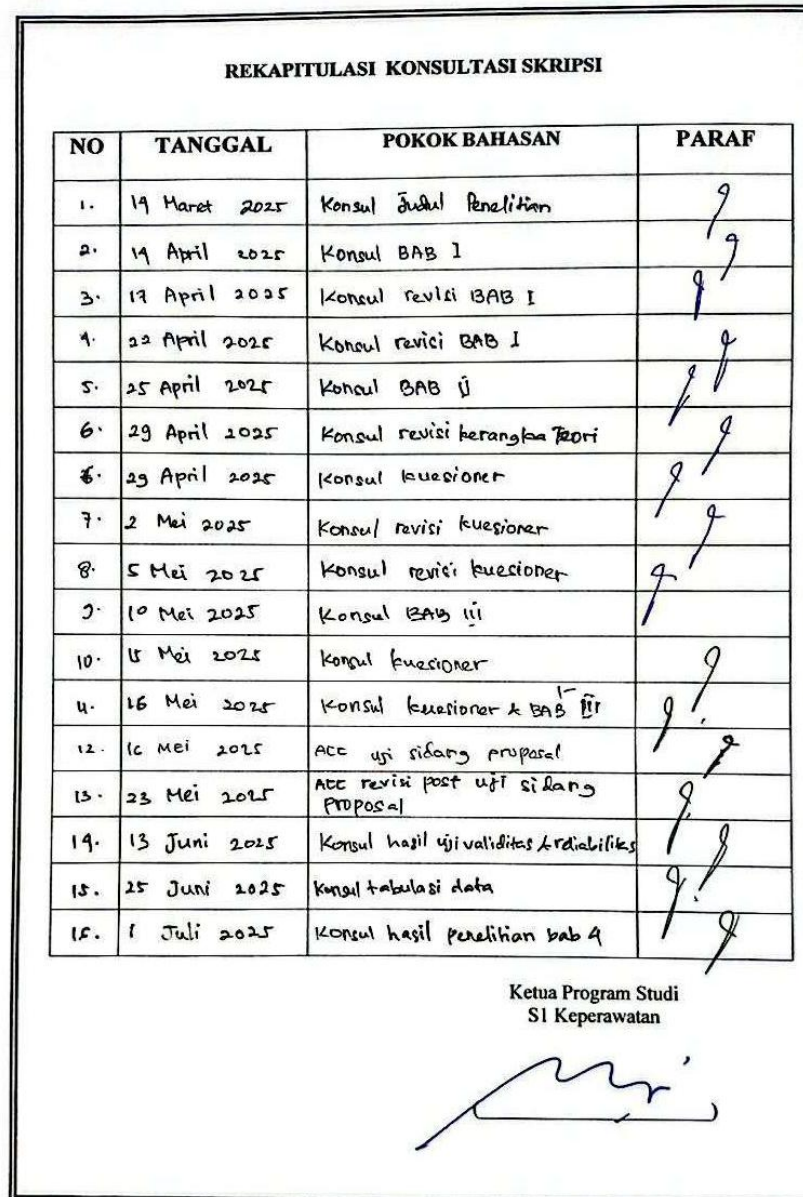 REKAPITULASI KONSULTASI SKRIPSI
NO TANGGAL POKOK BAHASAN PARAF
1. 19 Maret 2025 Konsul Judul Penelitian
2. 14 April 2025 Konsul BAB I
3. 17 April 2025 Konsul revisi BAB I
4. 22 April 2025 Konsul revisi BAB I
5. 25 April 2025 Konsul BAB II
6. 29 April 2025 Konsul revisi kerangka Teori
6. 29 April 2025 Konsul kuesioner
7. 2 Mei 2025 Konsul revisi kuesioner
8. 5 Mei 2025 Konsul revisi kuesioner
9. 10 Mei 2025 Konsul BAB III
10. 15 Mei 2025 Konsul kuesioner
11. 16 Mei 2025 Konsul kuesioner & BAB I- III
12. 16 Mei 2025 ACC uji sidang proposal
13. 23 Mei 2025 ACC revisi post uji sidang
proposal
14. 13 Juni 2025 Konsul hasil uji validitas & reliabilitas
15. 25 Juni 2025 Konsul tabulasi data
16. 1 Juli 2025 Konsul hasil penelitian bab 4
Ketua Program Studi
S1 Keperawatan